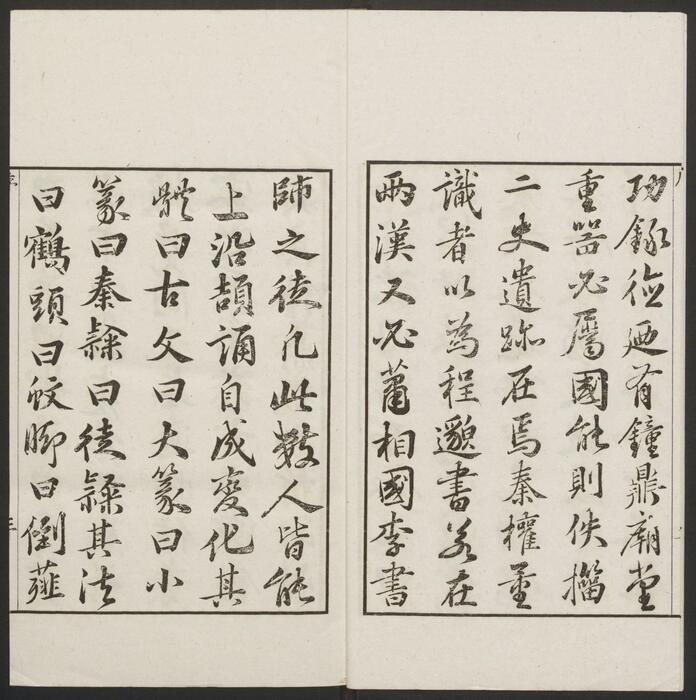 功錄德廼有鐘鼎廟堂
重器必屬國能則佚籀
二史遺跡在焉秦權量
識者以為程邈書若在
兩漢又必蕭相國李書
師之徒凡此數人皆能
上沿頡誦自成變化其
體曰古文曰大篆曰小
篆曰秦隸曰徒隸其法
曰鶴頭曰蚊脚曰倒薤
三
三